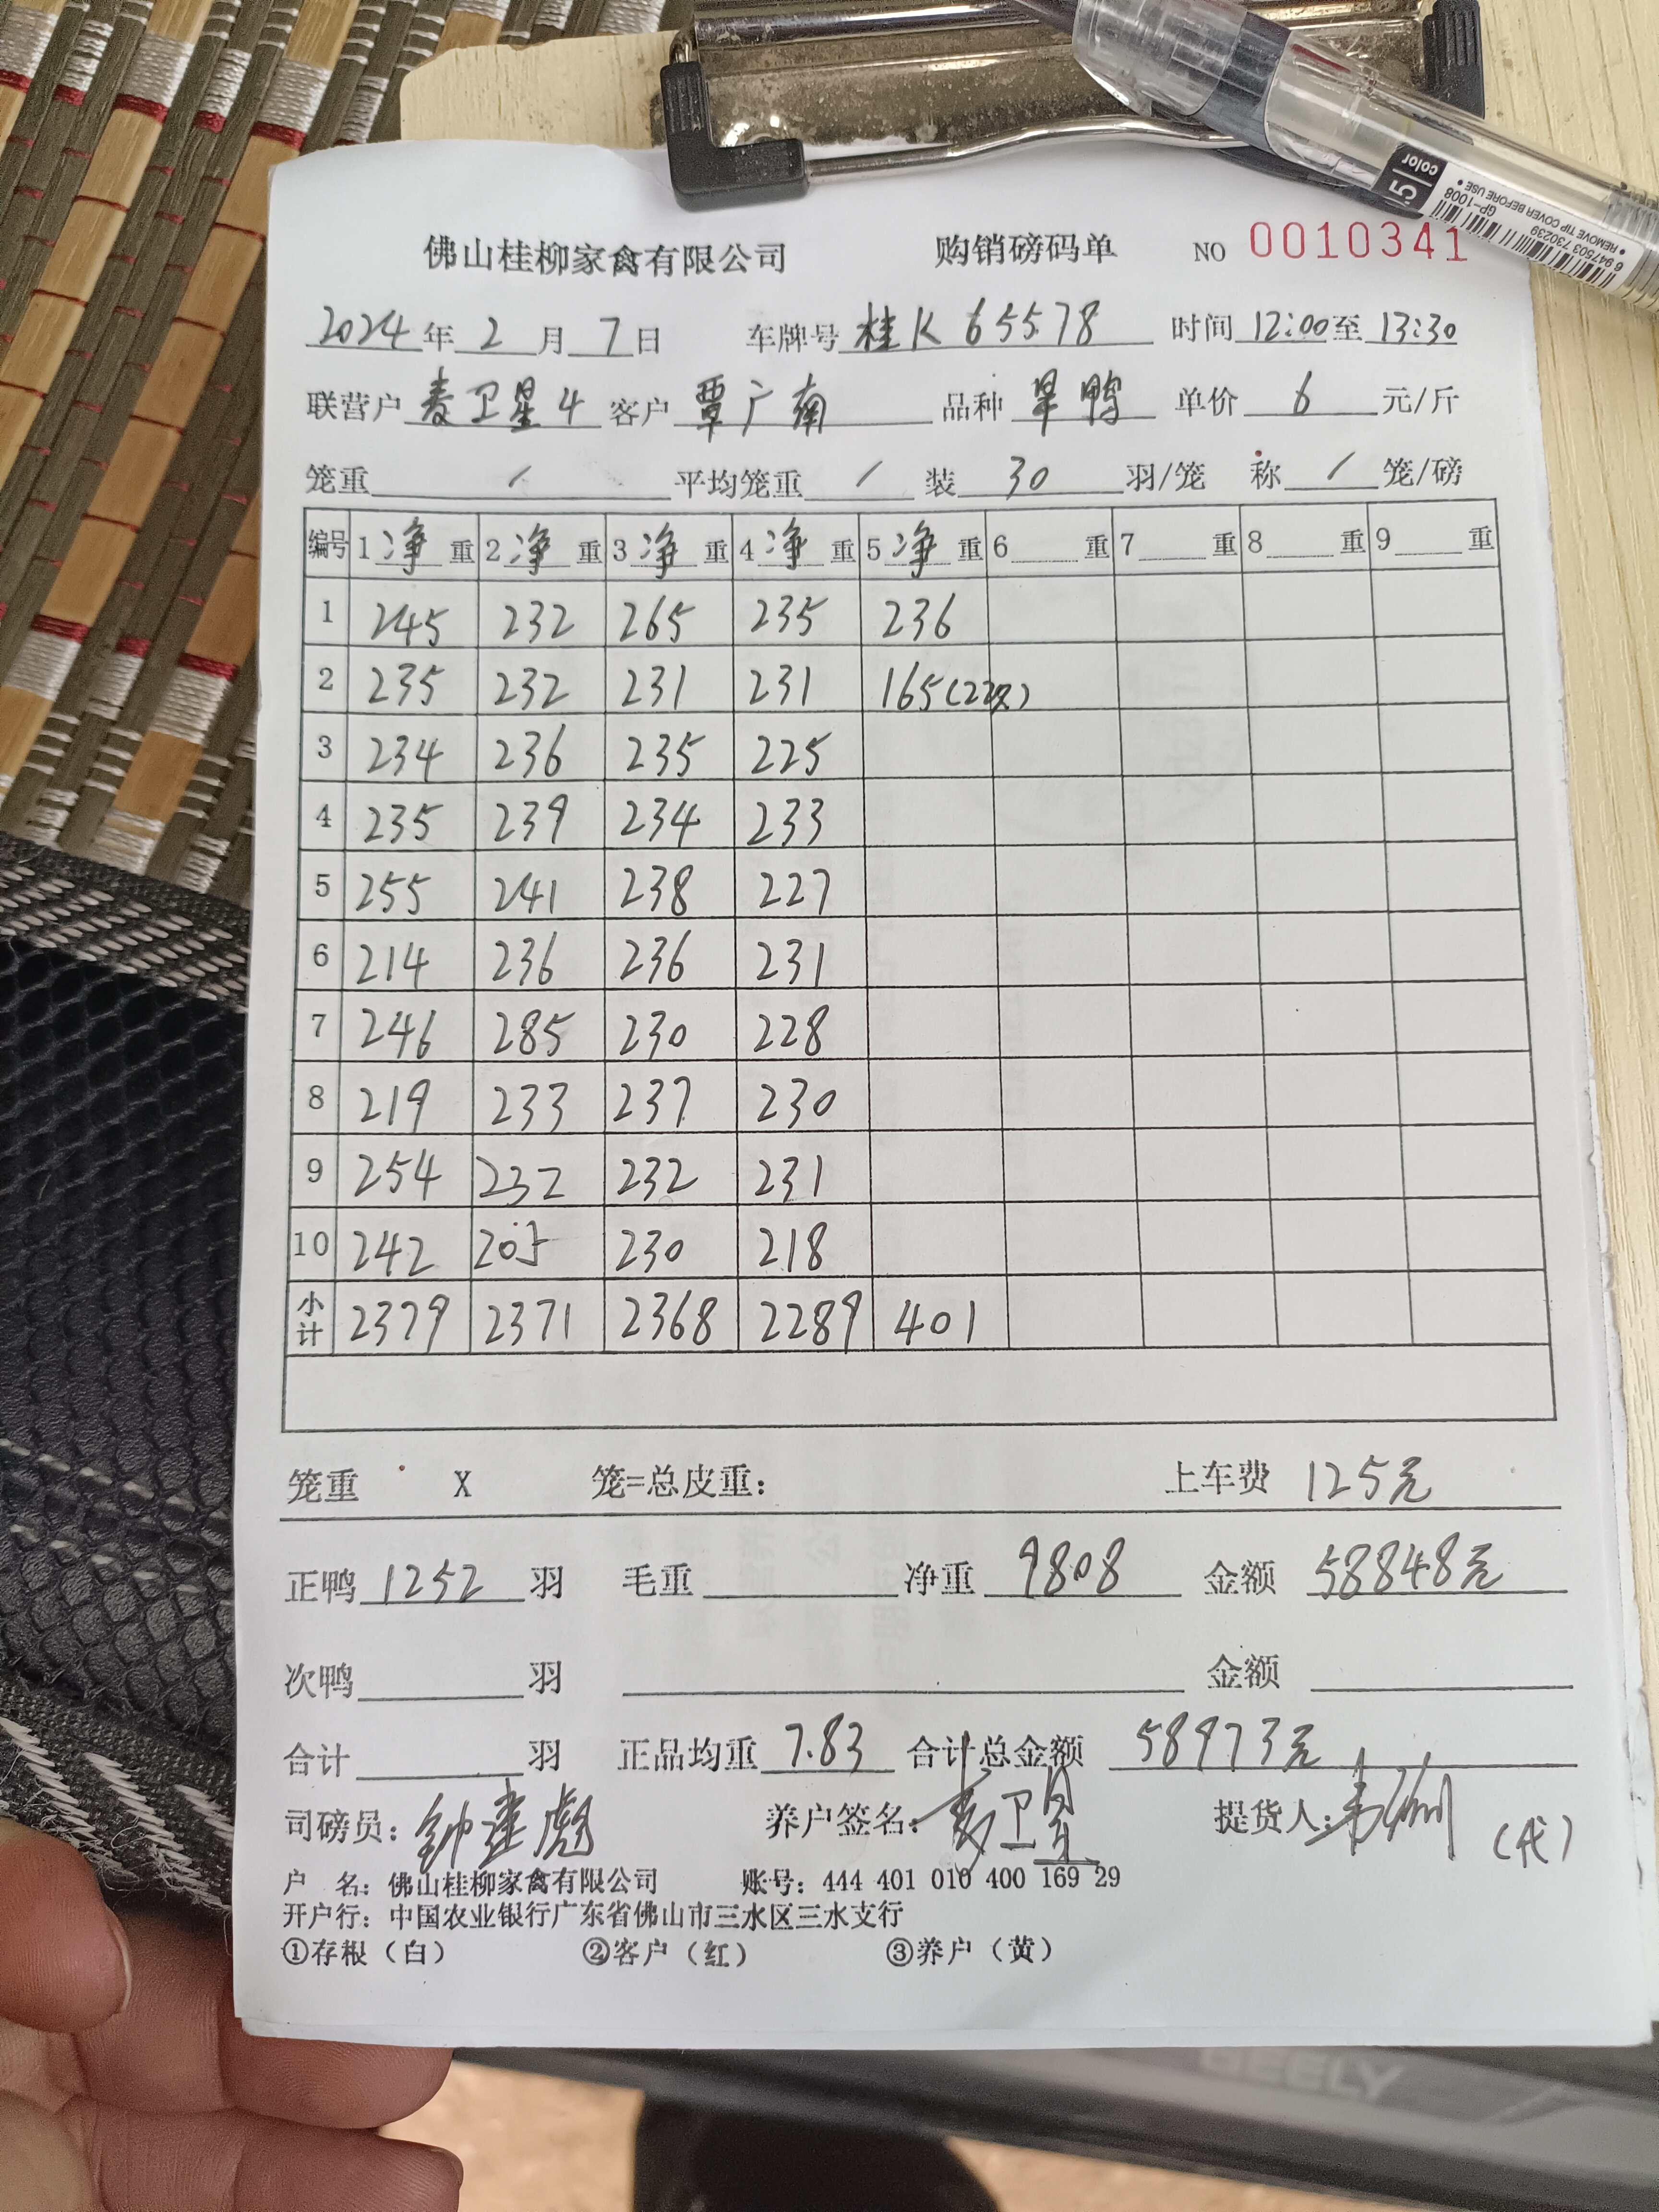 5 color
GP-1008
• REMOVE TIP COVER BEFORE USE •
6 947503 730239
佛山桂柳家禽有限公司 购销磅码单 NO 0010341
2024年2月7日 车牌号桂K65578 时间12:00至13:30
联营户麦卫星4 客户覃广南 品种旱鸭 单价6元/斤
笼重/ 平均笼重/ 装30羽/笼 称/笼/磅
编号 1净重 2净重 3净重 4净重 5净重 6重 7重 8重 9重
1 245 232 265 235 236
2 235 232 231 231 165(22只)
3 234 236 235 225
4 235 239 234 233
5 255 241 238 227
6 214 236 236 231
7 246 285 230 228
8 219 233 237 230
9 254 232 232 231
10 242 205 230 218
小计 2379 2371 2368 2289 401
笼重 X 笼=总皮重: 上车费 125元
正鸭1252羽 毛重 净重9808 金额58848元
次鸭 羽 金额
合计 羽 正品均重7.83 合计总金额 58973元
司磅员:钟建彪 养户签名:麦卫星 提货人: (代)
户 名:佛山桂柳家禽有限公司 账号:444 401 010 400 169 29
开户行:中国农业银行广东省佛山市三水区三水支行
①存根(白) ②客户(红) ③养户(黄)